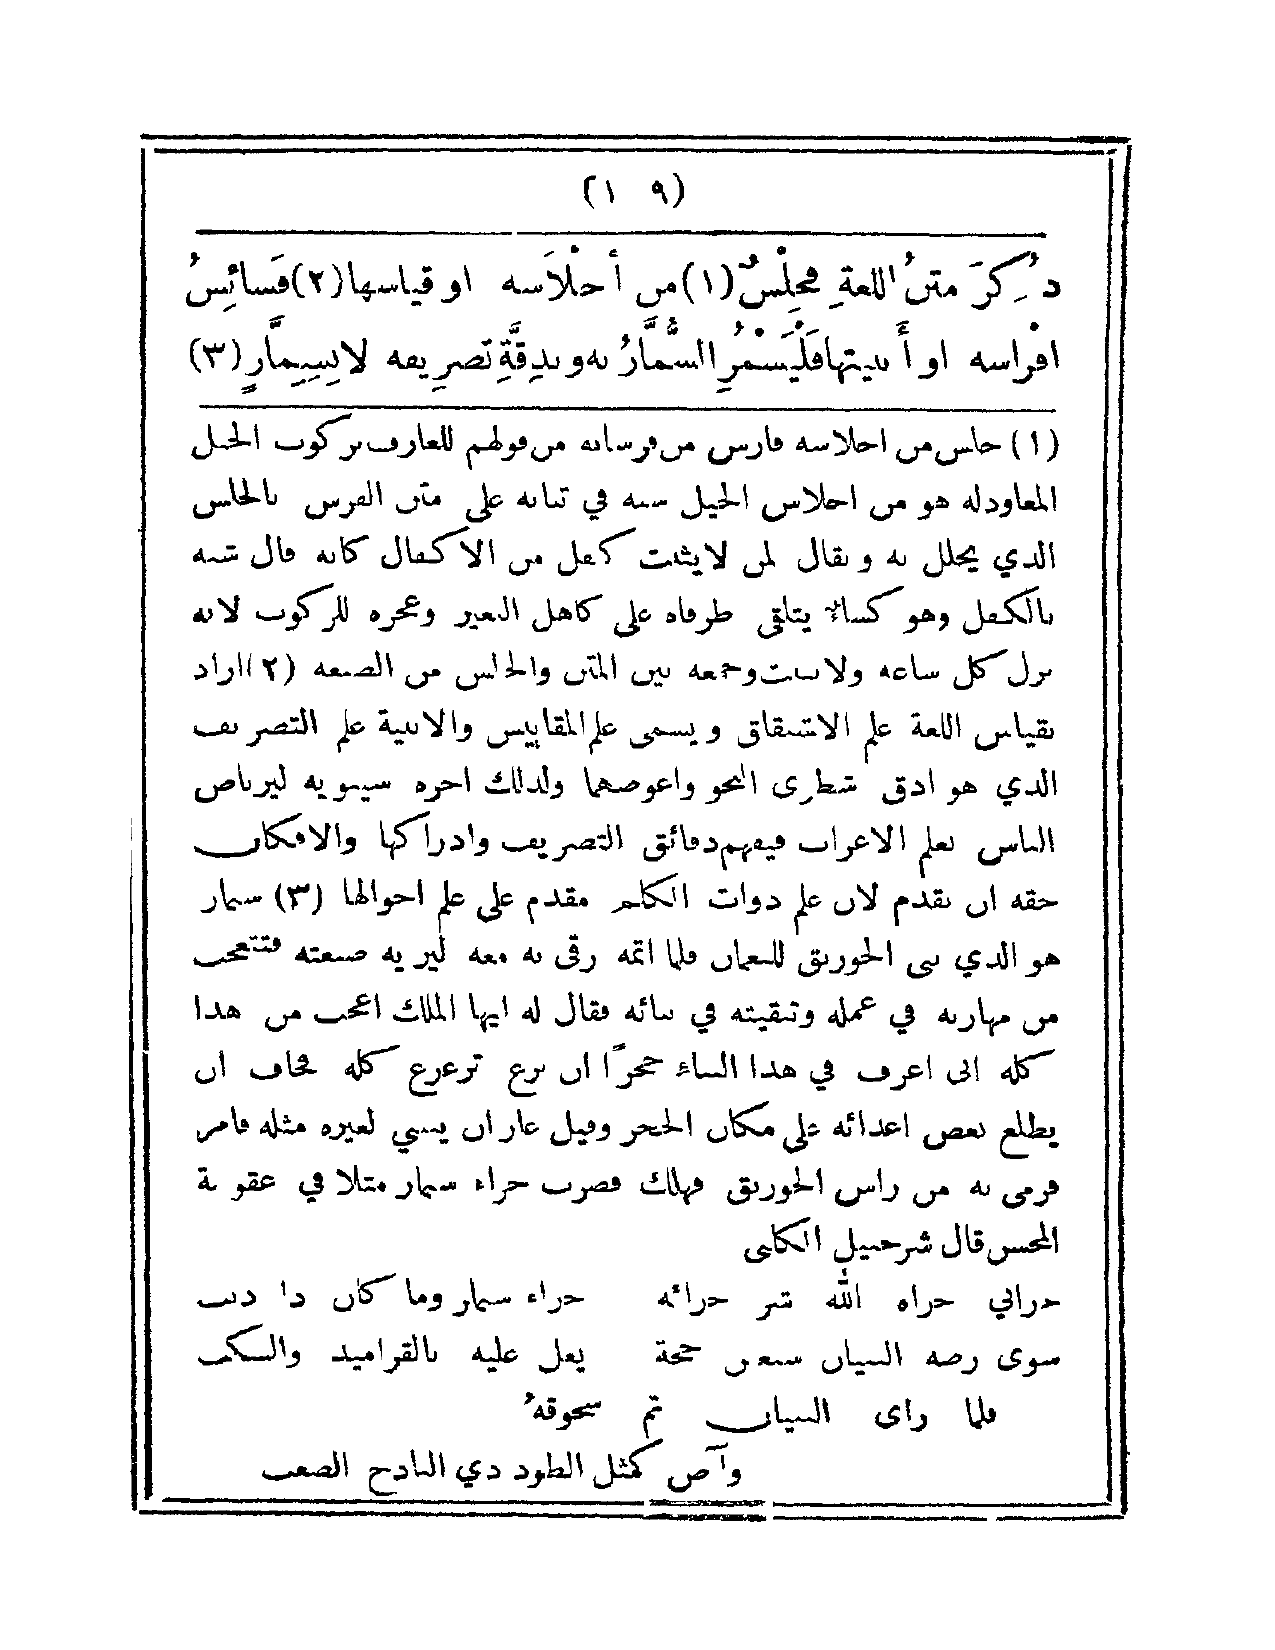 (١٩)
ذُكِرَ متنُ اللغةِ فحِلْسٌ (١) من أحْلَاسه او قياسها (٢) فَسائِسُ
افْراسه او أَبنيتها فَلْيَسْمُرِ السُّمَّارُ به وبدِقَّةِ تصريفه لاسِنِمَّارٍ (٣)
(١) حلس من احلاسه فارس من فرسانه من قولهم للعارف بركوب الخيل
المعاود له هو من احلاس الخيل شبه في ثباته على متن الفرس بالحلس
الذي يجلل به ويقال لمن لا يثبت كفل من الاكفال كانه قال شبه
بالكفل وهو كساء يتلقى طرفاه على كاهل البعير وعجزه للركوب لانه
يزل كل ساعة ولا يثبت وجمعه بين المتن والحلس من الصنعه (٢) اراد
بقياس اللغة علم الاشتقاق ويسمى علم المقاييس والابنية علم التصريف
الذي هو ادق شطرى النحو واغوصهما ولذلك اخره سيبويه ليرتاض
الناس بعلم الاعراب فيفهم دقائق التصريف وادراكها والافكان
حقه ان يقدم لان علم ذوات الكلم مقدم على علم احوالها (٣) سنمار
هو الذي بنى الخورنق للنعمان فلما اتمه رقى به معه ليريه صنعته فتعجب
من مهارته في عمله وتنيقته في بنائه فقال له ايها الملك اعجب من هذا
كله انى اعرف في هذا البناء حجرًا ان نزع تزعزع كله فخاف ان
يطلع بعض اعدائه على مكان الحجر وقيل غار ان يبني لغيره مثله فامر
فرمى به من راس الخورنق فهلك فضرب جزاء سنمار مثلا في عقوبة
المحسن قال شرحبيل الكلبى
جزاني جزاه الله شر جزائه جزاء سنمار وما كان ذا ذنب
سوى رصه البنيان سبعين حجة يعل عليه بالقراميد والسكب
فلما راى البنيان تم سحوقهُ
وآض كمثل الطود ذي الباذخ الصعب